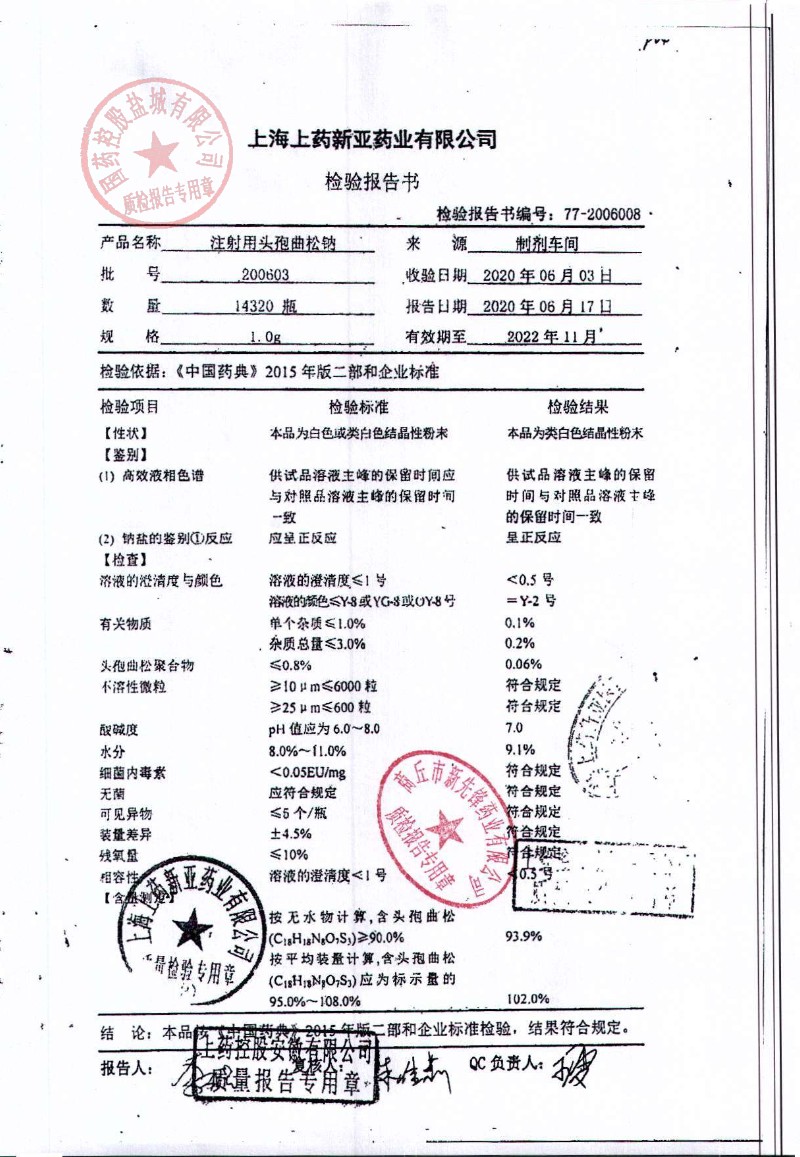 国药控股盐城有限公司
质检报告专用章
上海上药新亚药业有限公司
检验报告书
检验报告书编号：77-2006008
产品名称 注射用头孢曲松钠 来 源 制剂车间
批 号 200603 收验日期 2020 年 06 月 03 日
数 量 14320 瓶 报告日期 2020 年 06 月 17 日
规 格 1.0g 有效期至 2022 年 11 月
检验依据：《中国药典》2015 年版二部和企业标准
检验项目 检验标准 检验结果
【性状】 本品为白色或类白色结晶性粉末 本品为类白色结晶性粉末
【鉴别】
(1) 高效液相色谱 供试品溶液主峰的保留时间应 供试品溶液主峰的保留
与对照品溶液主峰的保留时间 时间与对照品溶液主峰
一致 的保留时间一致
(2) 钠盐的鉴别①反应 应呈正反应 呈正反应
【检查】
溶液的澄清度与颜色 溶液的澄清度≤1 号 <0.5 号
溶液的颜色≤Y-8 或 YG-8 或 OY-8 号 =Y-2 号
有关物质 单个杂质≤1.0% 0.1%
杂质总量≤3.0% 0.2%
头孢曲松聚合物 ≤0.8% 0.06%
不溶性微粒 ≥10μm≤6000 粒 符合规定
≥25μm≤600 粒 符合规定
酸碱度 pH 值应为 6.0～8.0 7.0
水分 8.0%～11.0% 9.1%
细菌内毒素 <0.05EU/mg 符合规定
无菌 应符合规定 符合规定
可见异物 ≤5 个/瓶 符合规定
装量差异 ±4.5% 符合规定
残氧量 ≤10% 符合规定
相容性 溶液的澄清度<1 号 <0.5 号
【含量测定】
按无水物计算,含头孢曲松
(C₁₈H₁₈N₈O₇S₃)≥90.0% 93.9%
按平均装量计算,含头孢曲松
(C₁₈H₁₈N₈O₇S₃)应为标示量的
95.0%～108.0% 102.0%
商丘市新先锋药业有限公司
质检报告专用章
上海上药新亚药业有限公司
质量检验专用章
结 论：本品按《中国药典》2015 年版二部和企业标准检验，结果符合规定。
上药控股安徽有限公司
质量报告专用章
报告人： 复核人： QC 负责人：